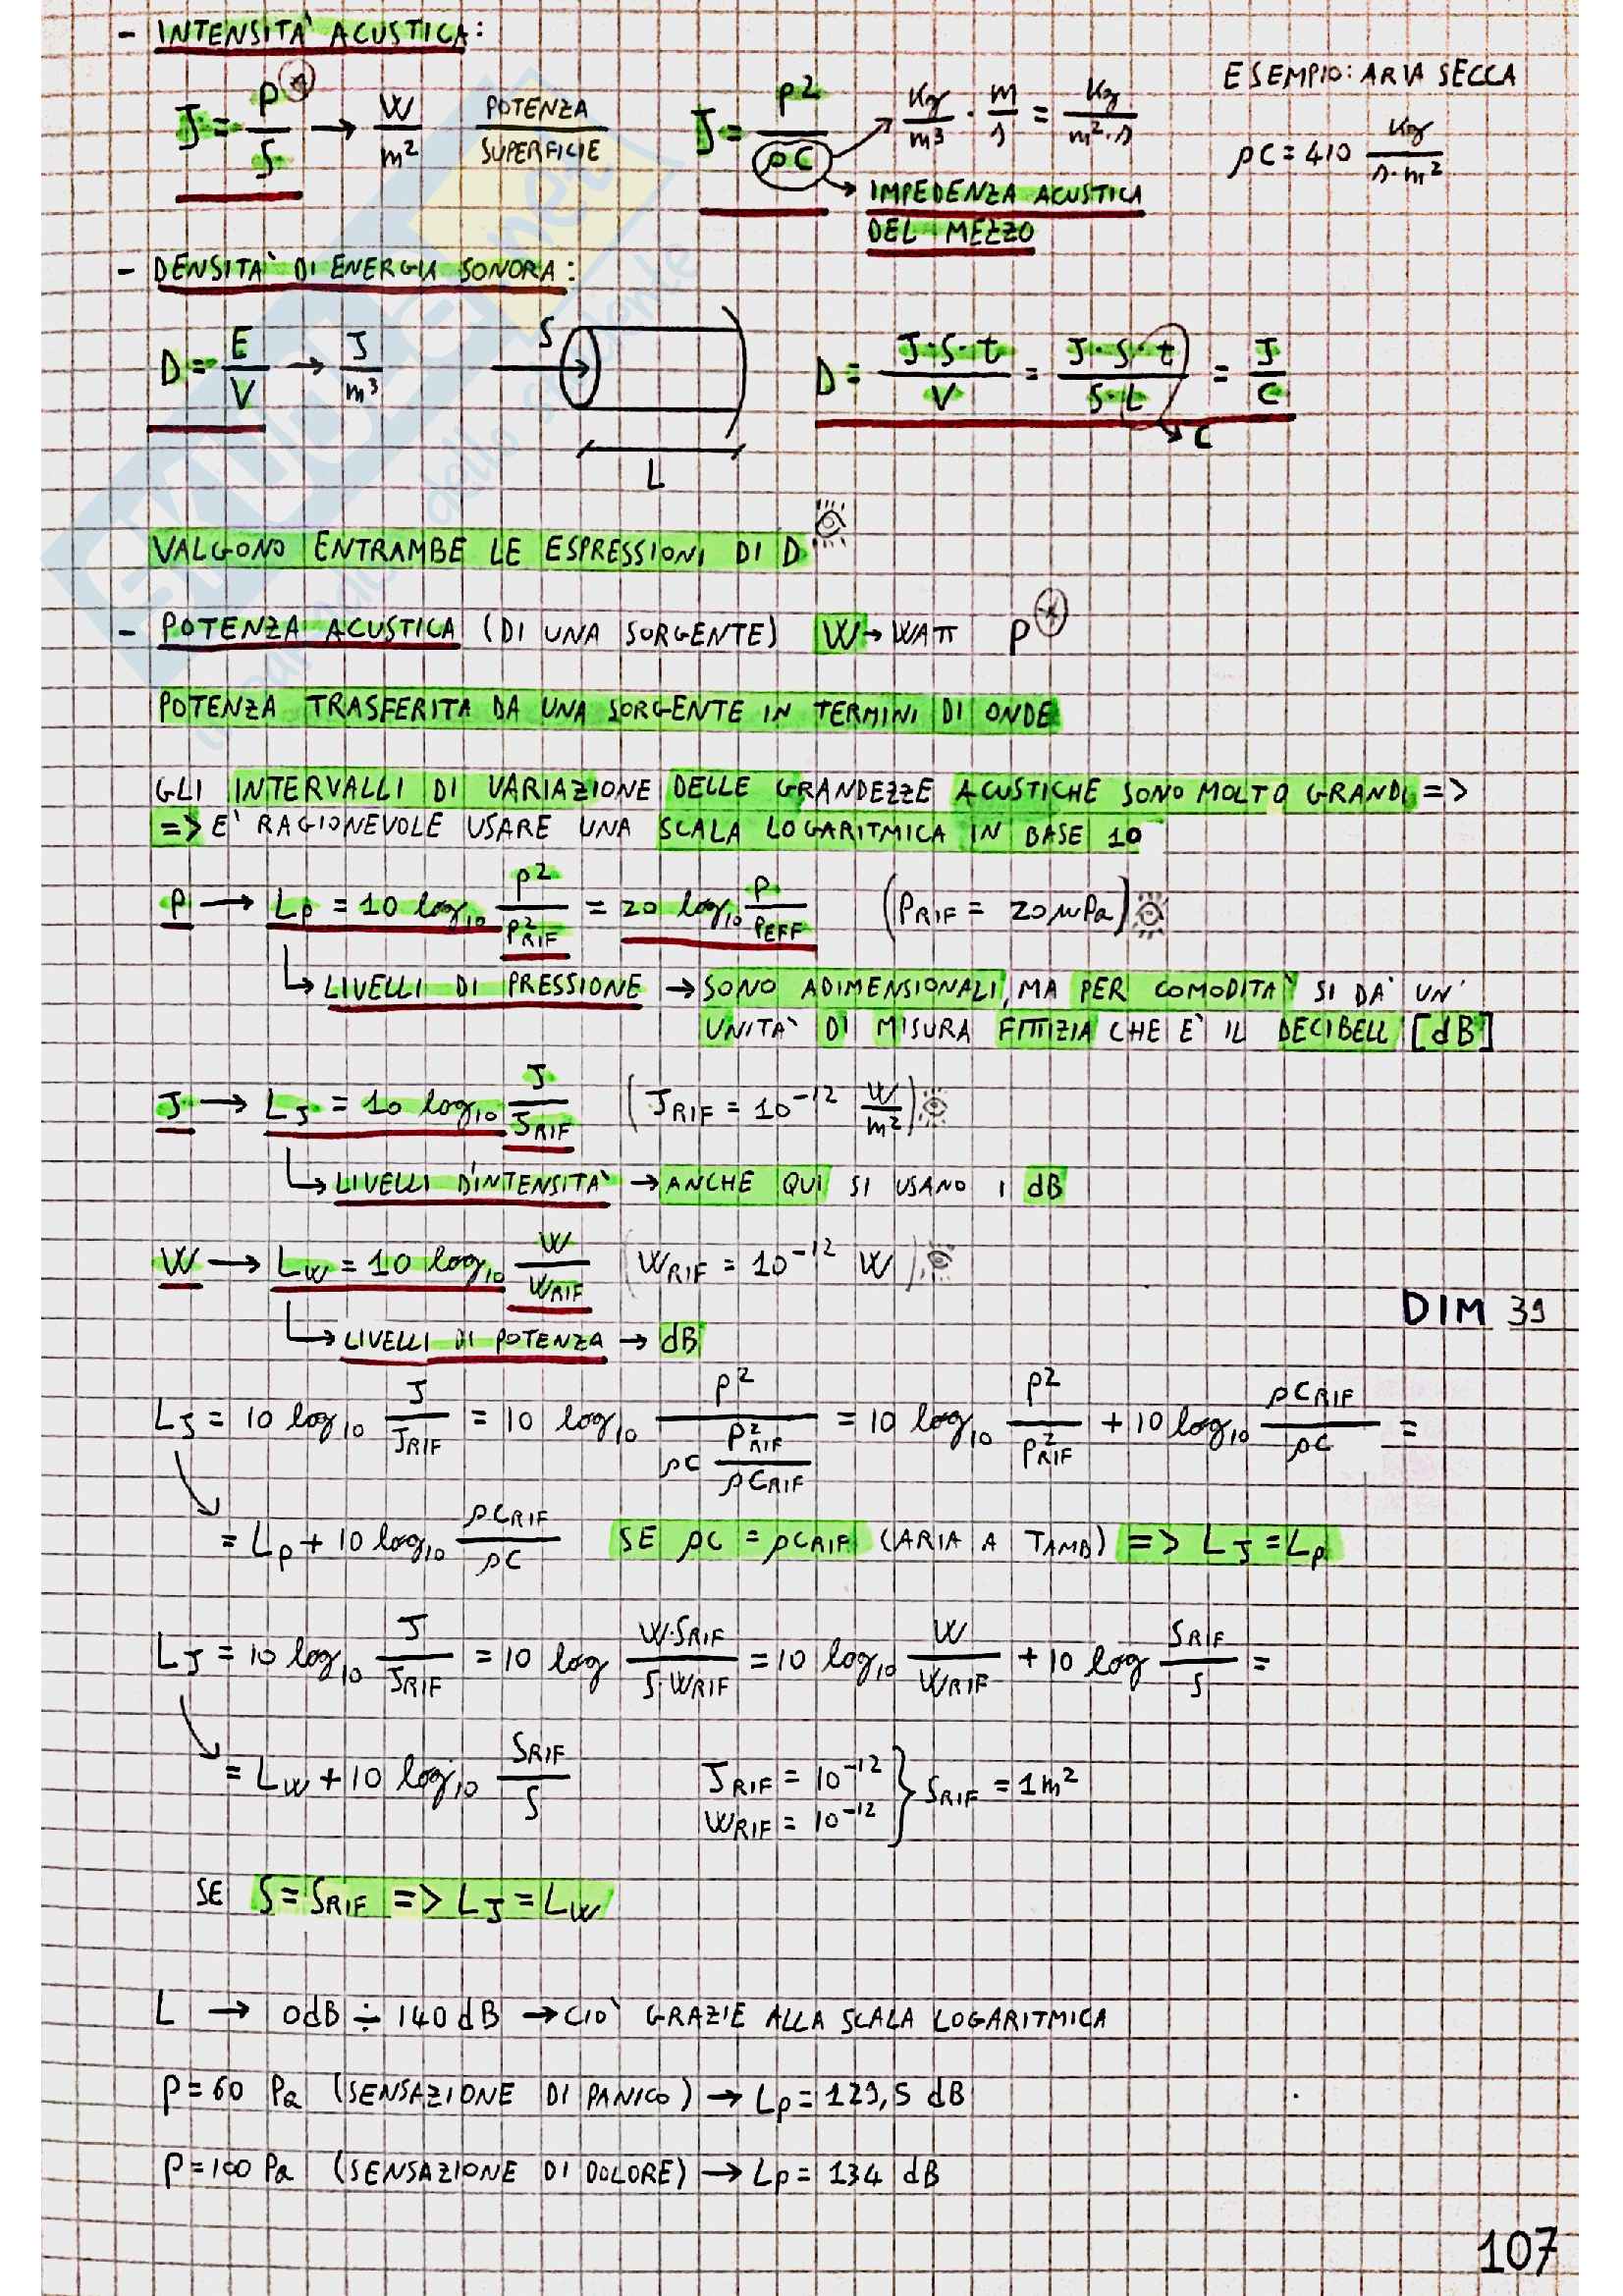 - INTENSITA' ACUSTICA:
J = P⊛/S → W/m² POTENZA/SUPERFICIE J = p²/ρC → Kg/m³ · m/s = Kg/m²·s ESEMPIO: ARIA SECCA
ρC = 410 Kg/s·m²
→ IMPEDENZA ACUSTICA
DEL MEZZO
- DENSITA' DI ENERGIA SONORA:
D = E/V → J/m³ S L D = J·S·t/V = J·S·t/S·L = J/C
→ C
VALGONO ENTRAMBE LE ESPRESSIONI DI D
- POTENZA ACUSTICA (DI UNA SORGENTE) W → WATT P⊛
POTENZA TRASFERITA DA UNA SORGENTE IN TERMINI DI ONDE
GLI INTERVALLI DI VARIAZIONE DELLE GRANDEZZE ACUSTICHE SONO MOLTO GRANDI =>
=> E' RAGIONEVOLE USARE UNA SCALA LOGARITMICA IN BASE 10
P → Lp = 10 log₁₀ p²/p²RIF = 20 log₁₀ P/PEFF (PRIF = 20 μPa)
↳ LIVELLI DI PRESSIONE → SONO ADIMENSIONALI, MA PER COMODITA' SI DA' UN'
UNITA' DI MISURA FITTIZIA CHE E' IL DECIBELL [dB]
J → LJ = 10 log₁₀ J/JRIF (JRIF = 10⁻¹² W/m²)
↳ LIVELLI D'INTENSITA' → ANCHE QUI SI USANO I dB
W → LW = 10 log₁₀ W/WRIF (WRIF = 10⁻¹² W)
DIM 39
↳ LIVELLI DI POTENZA → dB
LJ = 10 log₁₀ J/JRIF = 10 log₁₀ p²/(ρC p²RIF/ρCRIF) = 10 log₁₀ p²/p²RIF + 10 log₁₀ ρCRIF/ρC =
= Lp + 10 log₁₀ ρCRIF/ρC SE ρC = ρCRIF (ARIA A TAMB) => LJ = Lp
LJ = 10 log₁₀ J/JRIF = 10 log W·SRIF/S·WRIF = 10 log₁₀ W/WRIF + 10 log SRIF/S =
= LW + 10 log₁₀ SRIF/S JRIF = 10⁻¹² WRIF = 10⁻¹² } SRIF = 1m²
SE S = SRIF => LJ = LW
L → 0dB ÷ 140 dB → CIO' GRAZIE ALLA SCALA LOGARITMICA
P = 60 Pa (SENSAZIONE DI PANICO) → Lp = 129,5 dB
P = 100 Pa (SENSAZIONE DI DOLORE) → Lp = 134 dB
107